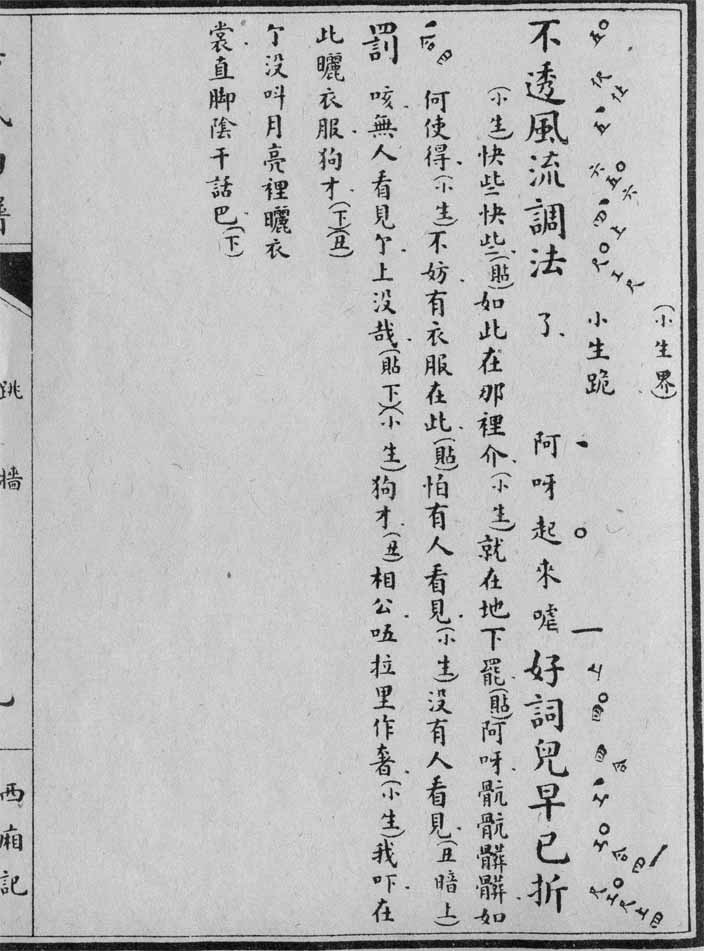 (小生界)
小生跪
不透風流調法了阿呀起來嘘好詞兒早已折
(小生)快些快些(貼)如此在那裡介(小生)就在地下罷(貼)阿呀骯骯髒髒如
何使得(小生)不妨有衣服在此(貼)怕有人看見(小生)没有人看見(丑暗上)
罰 咳無人看見亇上没哉(貼下)(小生)狗才(丑)相公㕶拉里作奢(小生)我吓在
此曬衣服狗才(下)(丑)
亇没呌月亮裡曬衣
裳直脚陰干話巴(下)
跳牆
西廂記